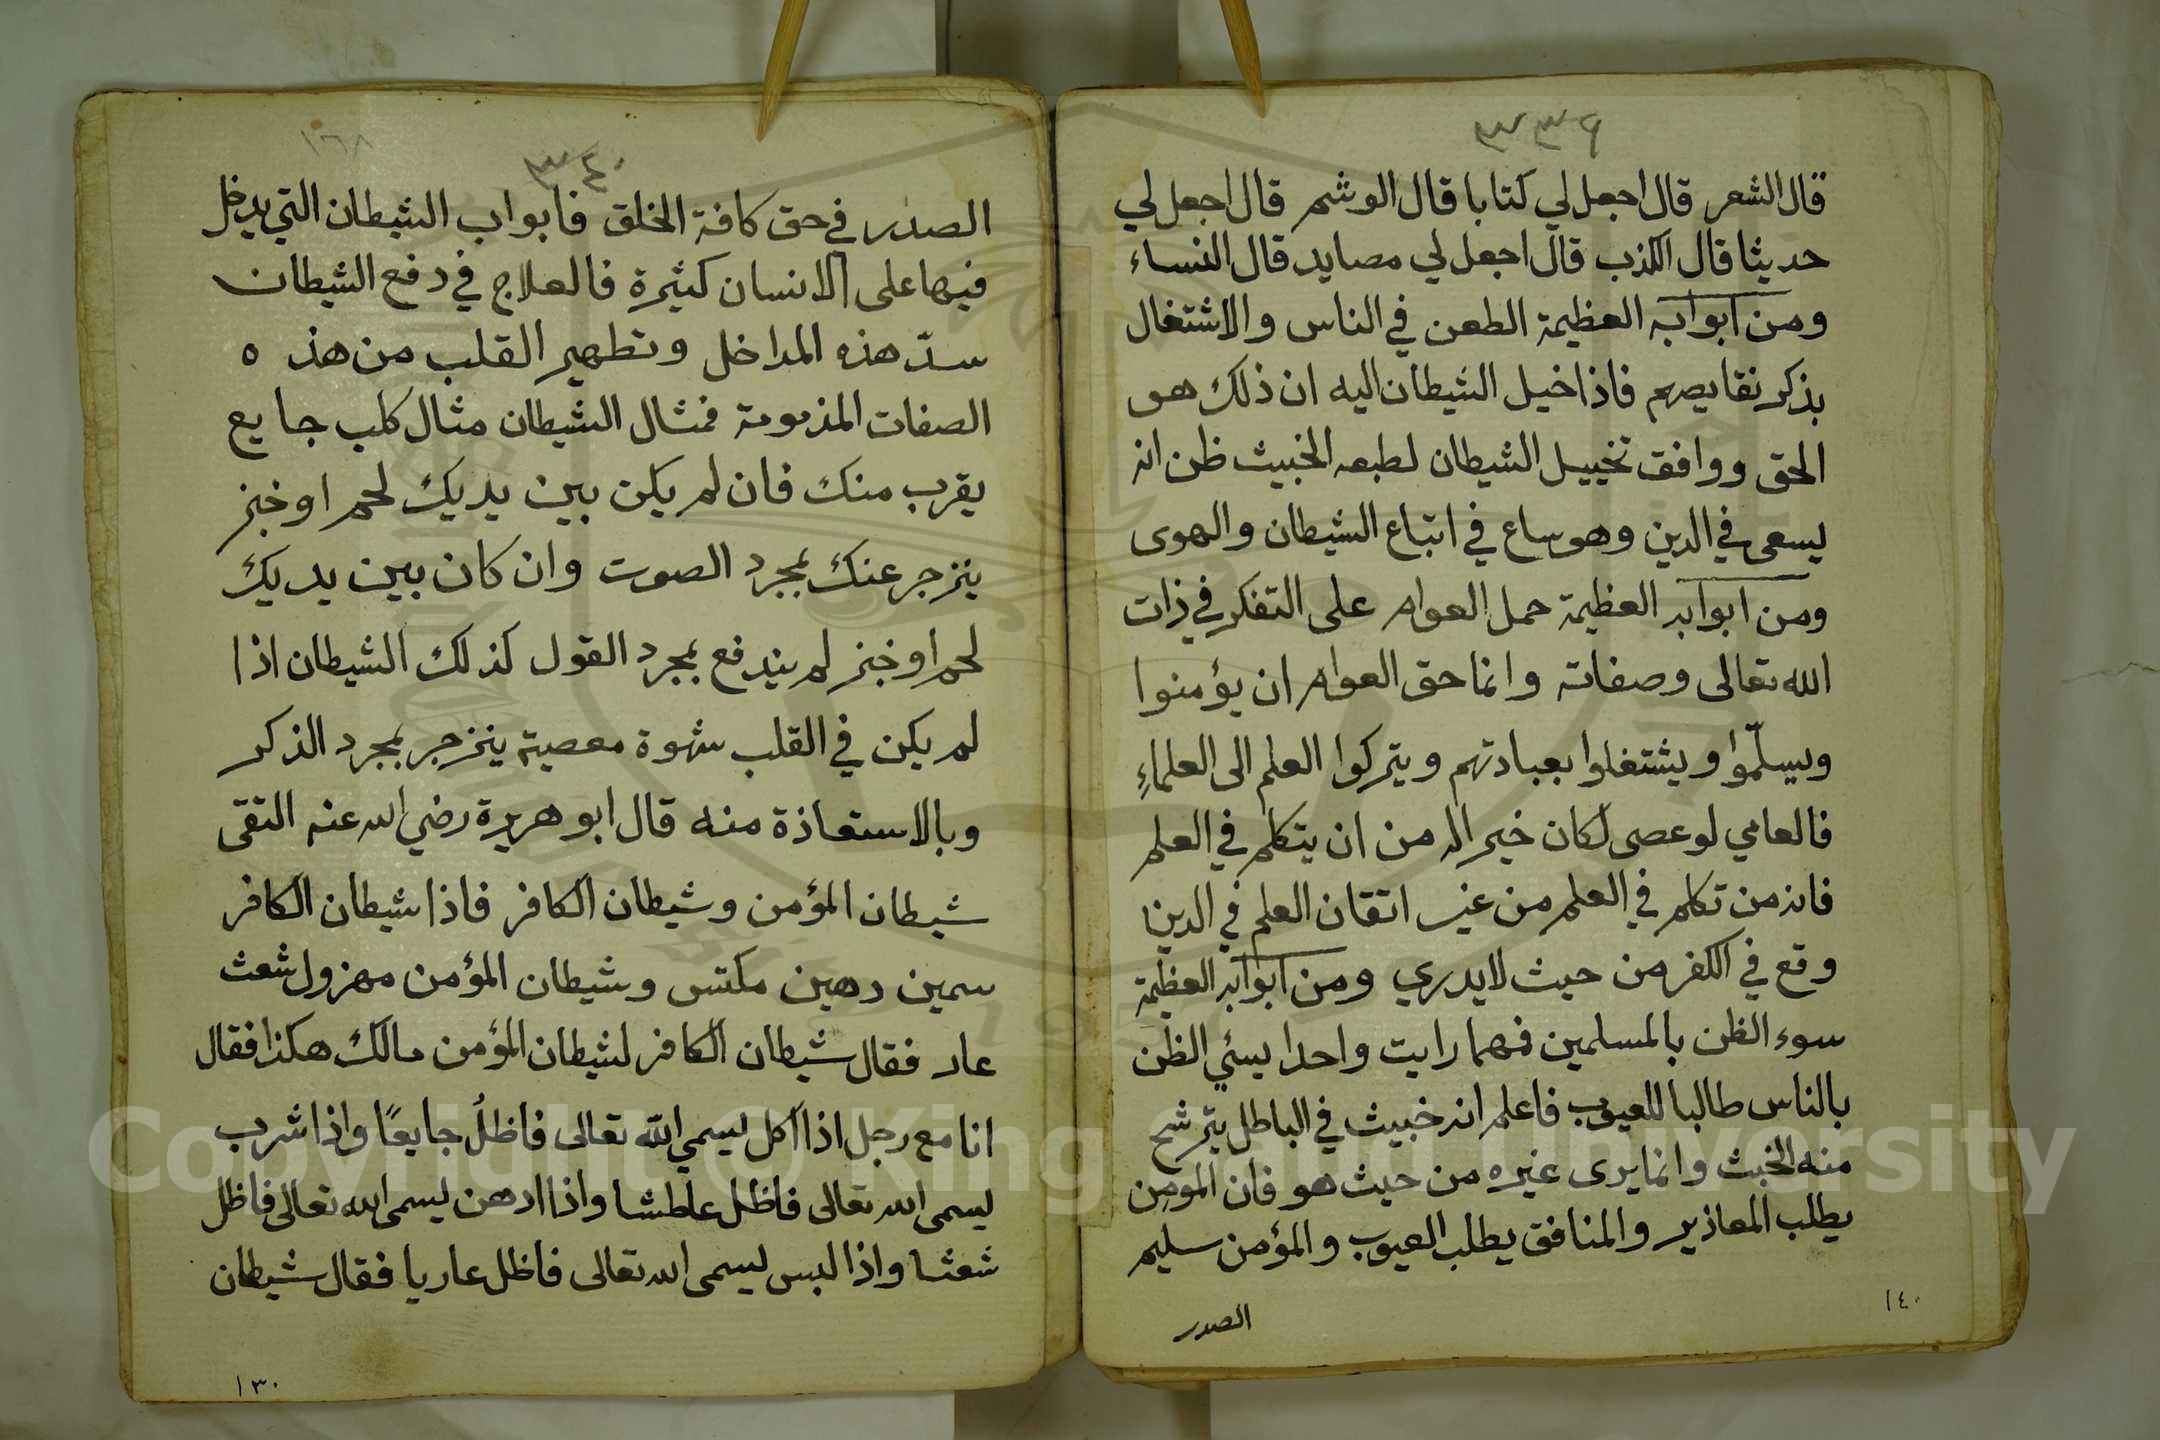 ٣٣٩
قال الشعر قال اجعل لي كتابا قال الوشم قال اجعل لي
حديثا قال الكذب قال اجعل لي مصايد قال النساء
ومن ابوابه العظيمة الطعن في الناس والاشتغال
بذكر نقايصهم فاذا خيل الشيطان اليه ان ذلك هو
الحق ووافق تخييل الشيطان لطبعه الخبيث ظن انه
يسعى في الدين وهو ساع في اتباع الشيطان والهوى
ومن ابوابه العظيمة حمل العوام على التفكر في ذات
الله تعالى وصفاته وانما حق العوام ان يؤمنوا
ويسلّموا ويشتغلوا بعبادتهم ويتركوا العلم الى العلماءِ
فالعامي لو عصى لكان خير اله من ان يتكلم في العلم
فانه من تكلم في العلم من غير اتقان العلم في الدين
وقع في الكفر من حيث لا يدري ومن ابوابه العظيمة
سوء الظن بالمسلمين فمهما رايت واحدا يسئي الظن
بالناس طالبا للعيوب فاعلم انه خبيث في الباطل يترشح
منه الخبث وانما يرى غيره من حيث هو فان المومن
يطلب المعاذير والمنافق يطلب العيوب والمؤمن سليم
الصدر
١٤٠
١٦٨
٣٤٠
الصدر في حق كافة الخلق فابواب الشيطان التي يدخل
فيها على الانسان كثيرة فالعلاج في دفع الشيطان
سدّ هذه المداخل وتطهير القلب من هذ ه
الصفات المذمومة فمثال الشيطان مثال كلب جايع
يقرب منك فان لم يكن بين يديك لحم او خبز
ينزجر عنك بمجرد الصوت وان كان بين يديك
لحم او خبز لم يندفع بمجرد القول كذلك الشيطان اذا
لم يكن في القلب شهوة معصية ينزجر بمجرد الذكر
وبالاستعاذة منه قال ابو هريرة رضي الله عنه التقى
شيطان المؤمن وشيطان الكافر فاذا شيطان الكافر
سمين دهين مكتس وشيطان المؤمن مهزول شعث
عار فقال شيطان الكافر لشيطان المؤمن مالك هكذا فقال
انا مع رجل اذا اكل يسمي الله تعالى فاظلُ جايعًا واذا شرب
يسمى الله تعالى فاظل عاطشا واذا ادهن يسمى الله تعالى فاظل
شعثا واذا لبس يسمى الله تعالى فاظل عاريا فقال شيطان
١٣٠
Copyright © King Saud University